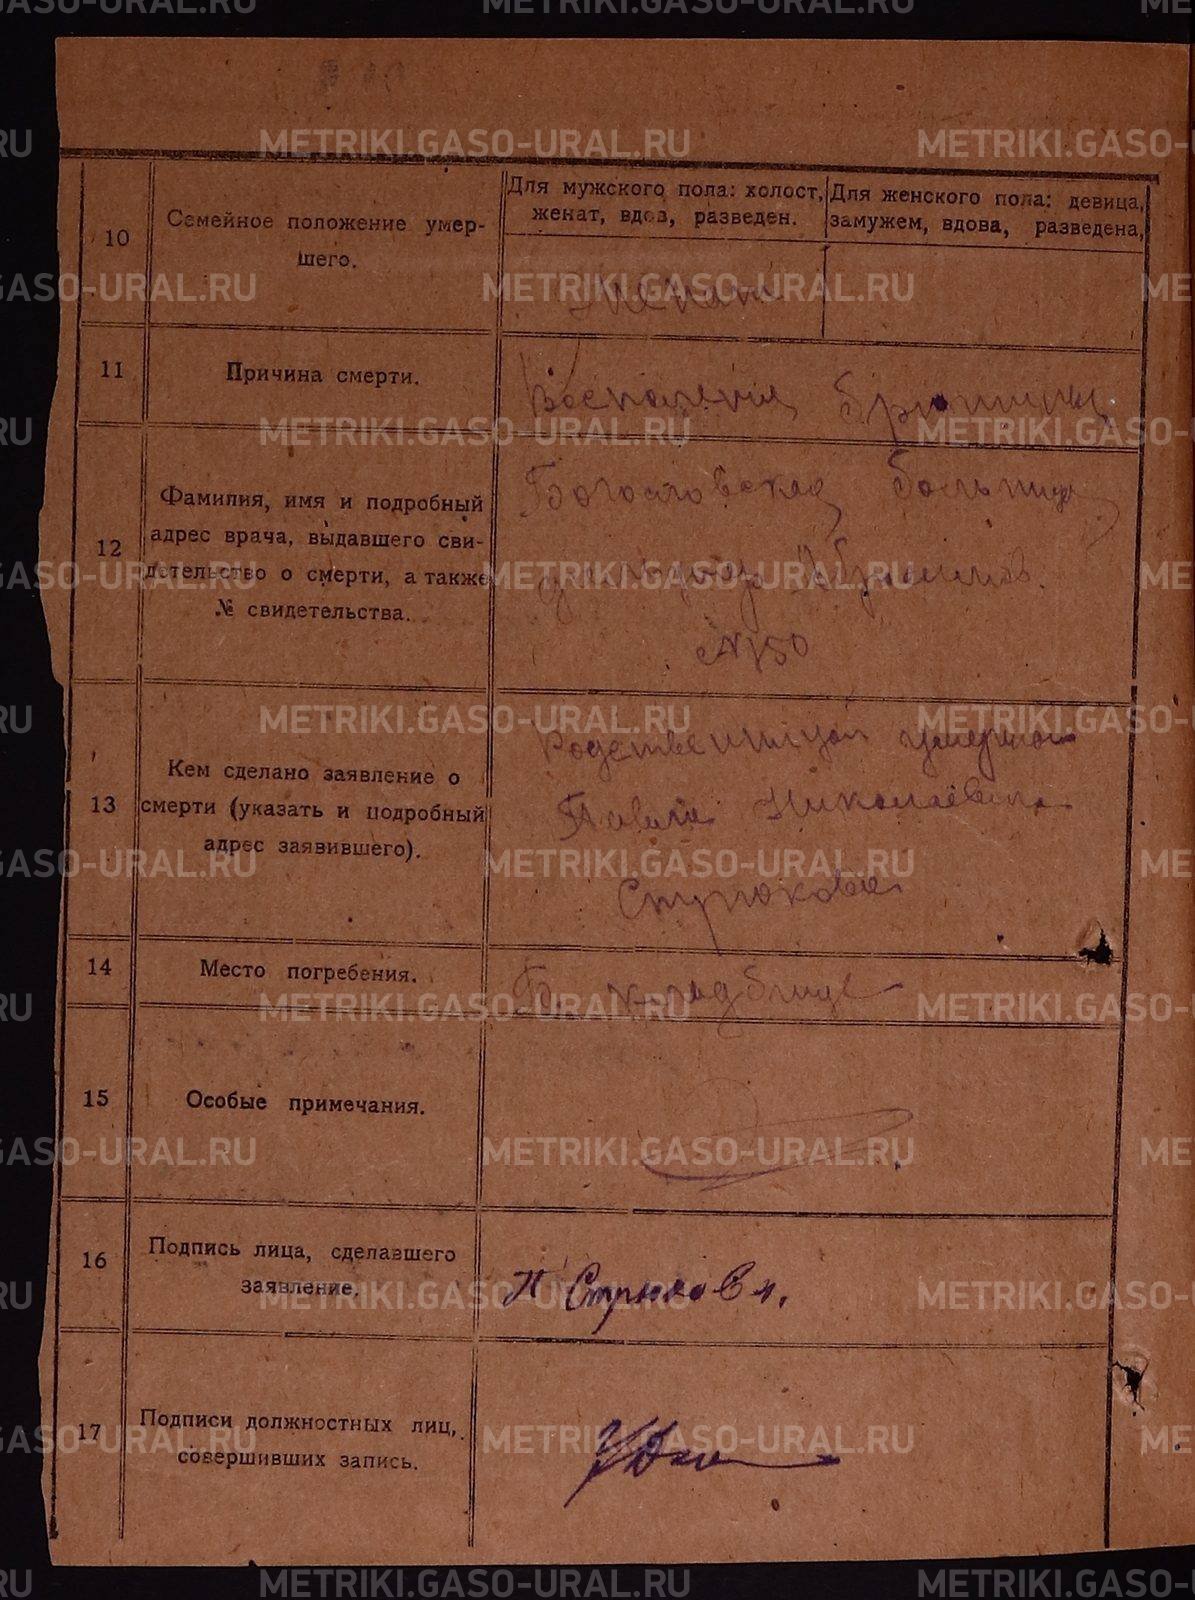 10
Семейное положение умер-
шего.
Для мужского пола: холост,
женат, вдов, разведен.
Для женского пола: девица,
замужем, вдова, разведена,
Женат
11
Причина смерти.
Воспаления брюшины
12
Фамилия, имя и подробный
адрес врача, выдавшего сви-
детельство о смерти, а также
№ свидетельства.
Богословская больница
Абрамов.
№ 50
13
Кем сделано заявление о
смерти (указать и подробный
адрес заявившего).
Родственницой
Николаевна
Стрюкова
14
Место погребения.
Б. кладбище
15
Особые примечания.
16
Подпись лица, сделавшего
заявление.
П Стрюкова.
17
Подписи должностных лиц,
совершивших запись.
METRIKI.GASO-URAL.RU